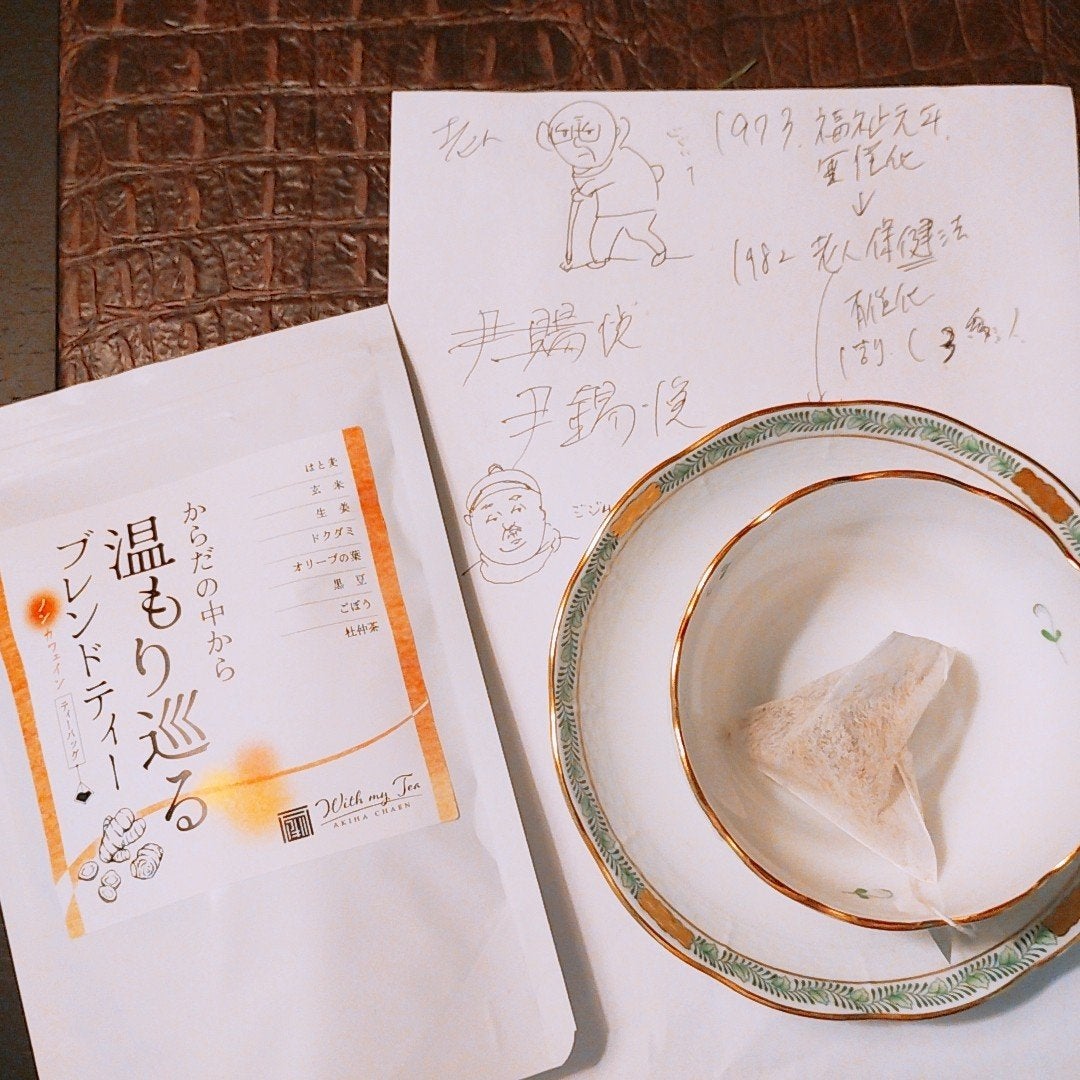 老人
1973. 福祉元年.
無償化
↓
1982 老人保健法
有償化
1割. (3
尹錫悦
はと麦
玄米
生姜
ドクダミ
オリーブの葉
黒豆
ごぼう
杜仲茶
からだの中から
温もり巡る
ブレンドティー
ノンカフェイン
ティーバッグ
With my Tea
AKIHA CHAEN